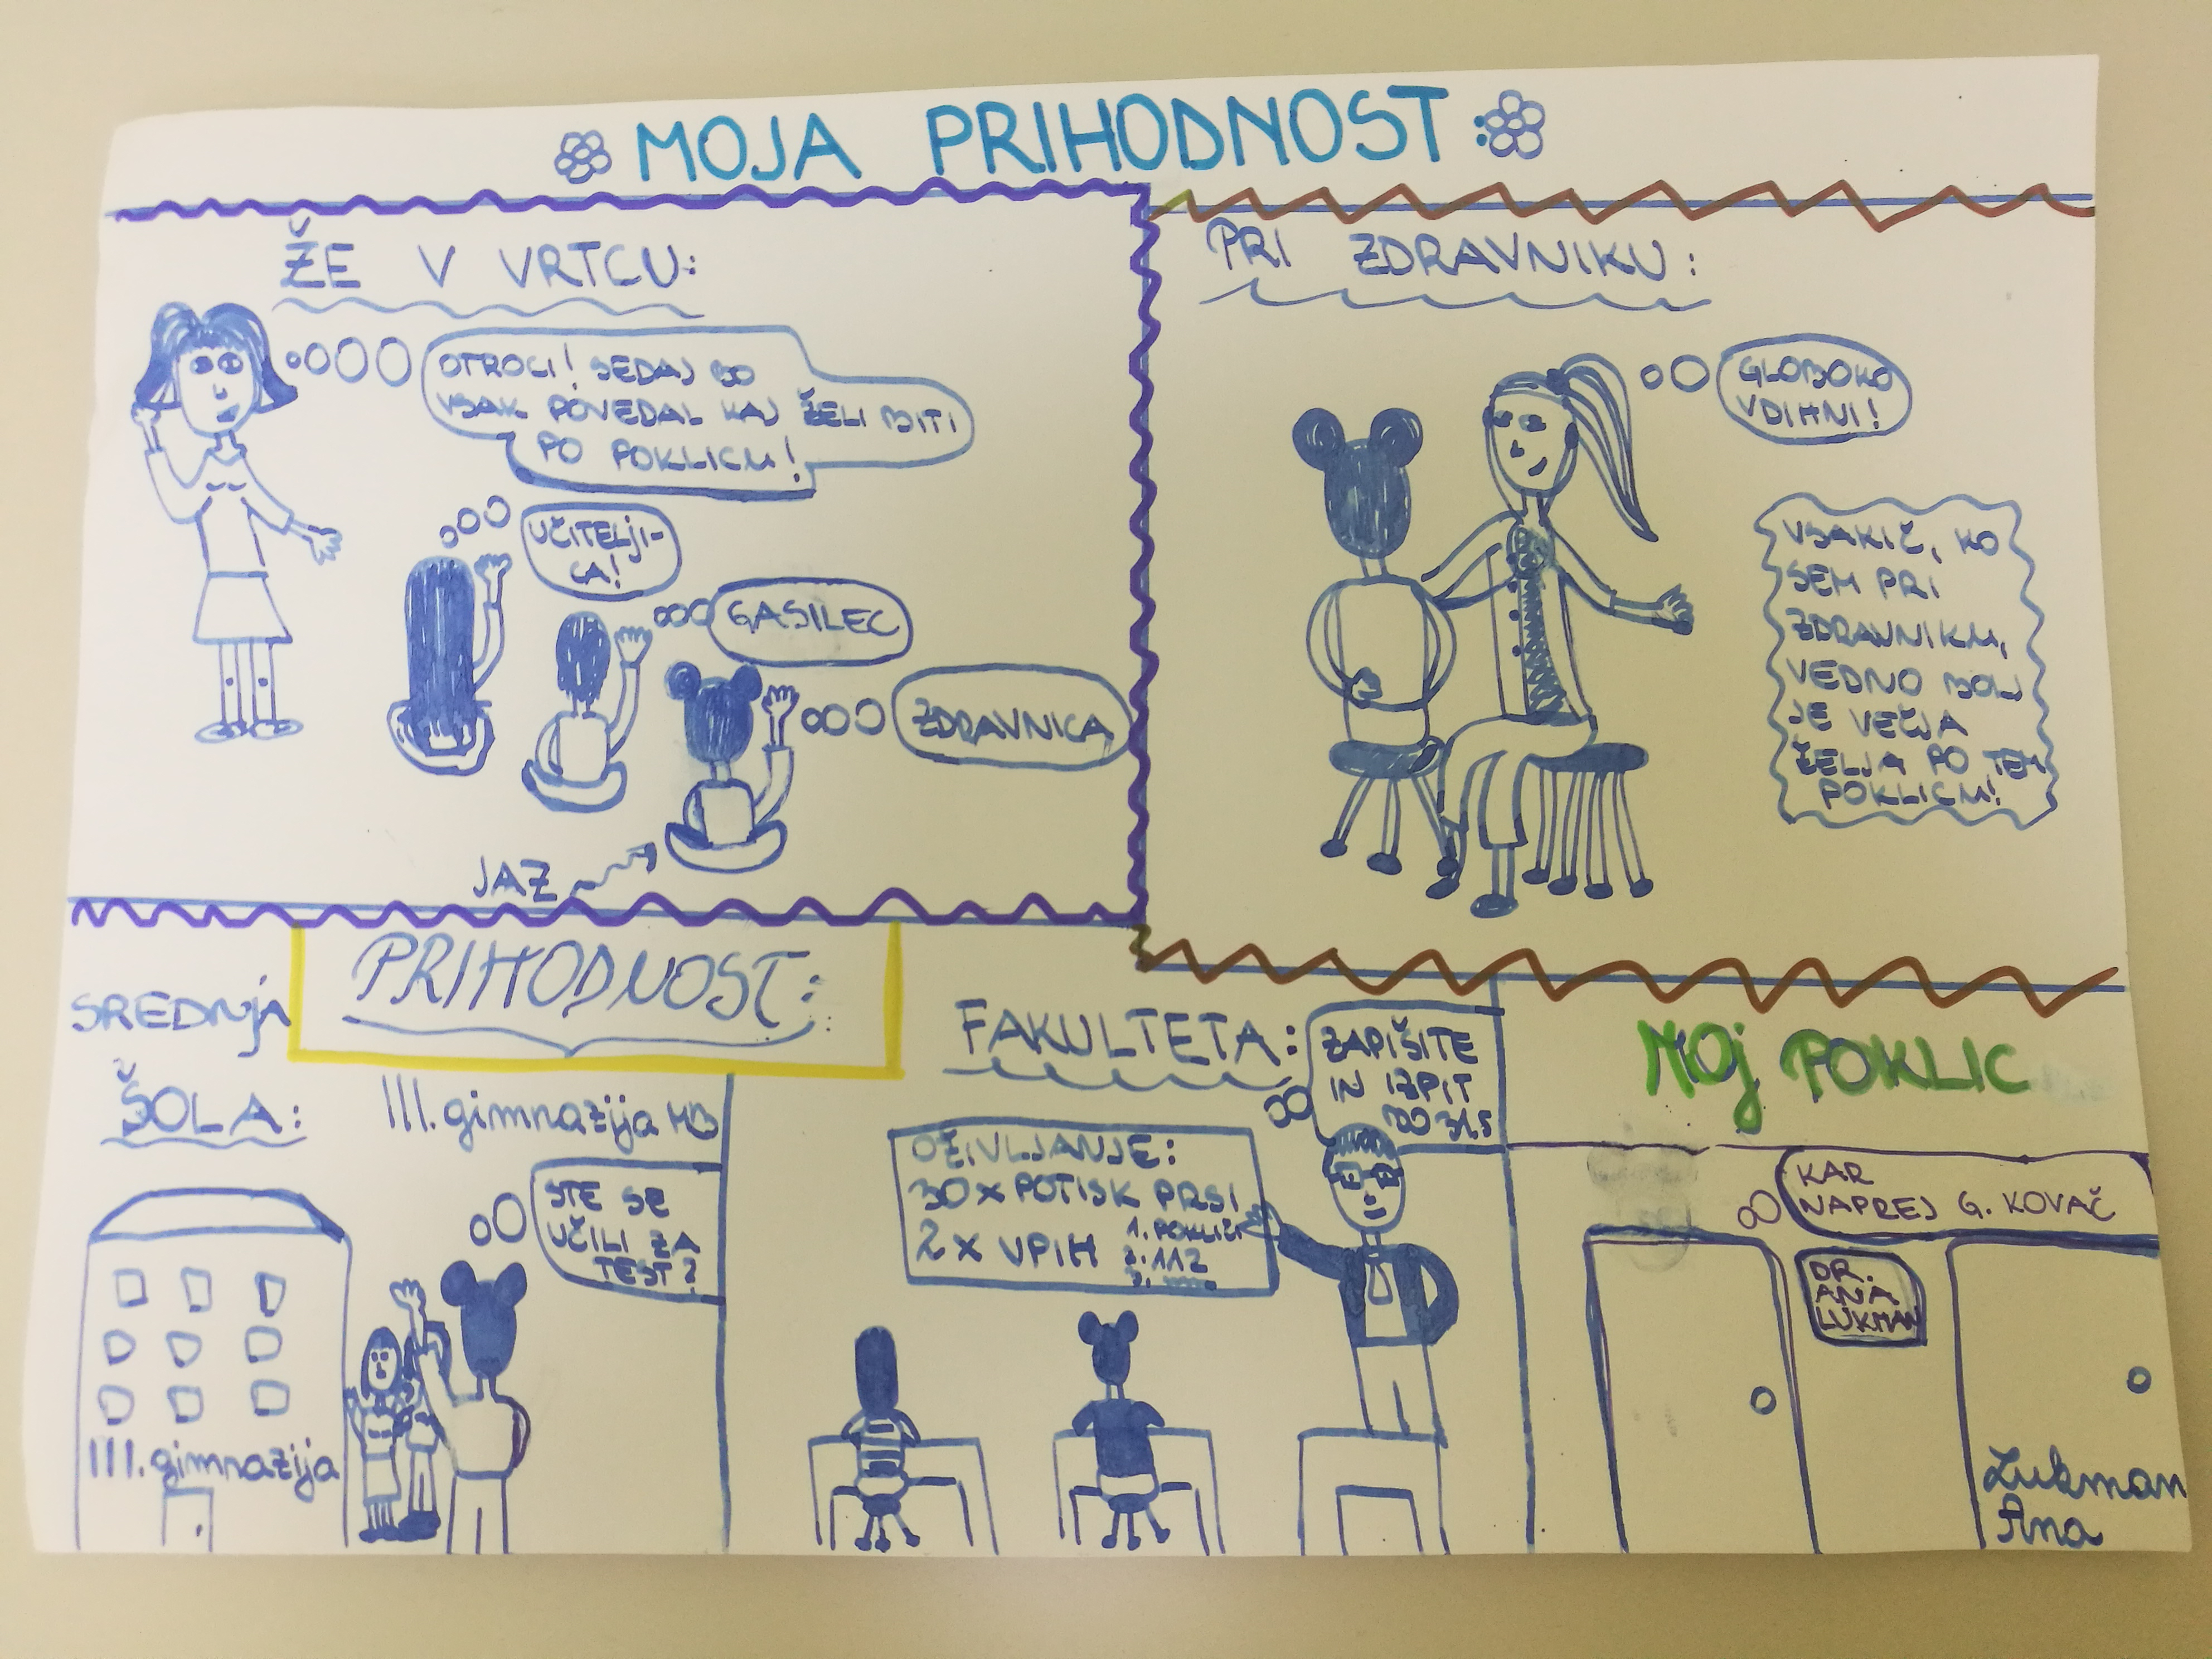 MOJA PRIHODNOST:
ŽE V VRTCU:
OTROCI! SEDAJ BO
VSAK POVEDAL KAJ ŽELI BITI
PO POKLICU!
UČITELJI-
CA!
GASILEC
ZDRAVNICA
JAZ
PRI ZDRAVNIKU:
GLOBOKO
VDIHNI!
VSAKIČ, KO
SEM PRI
ZDRAVNIKU,
VEDNO BOLJ
JE VEČJA
ŽELJA PO TEM
POKLICU!
PRIHODNOST:
SREDNJA
ŠOLA:
III. gimnazija MB
STE SE
UČILI ZA
TEST?
III. gimnazija
FAKULTETA:
ZAPIŠITE
IN IZPIT
BO 31.5
OŽIVLJANJE:
30 x POTISK PRSI
2 x VPIH
1. POKLIČI
2. 112
3.
MOJ POKLIC
KAR
NAPREJ G. KOVAČ
DR.
ANA
LUKMAN
Lukman
Ana